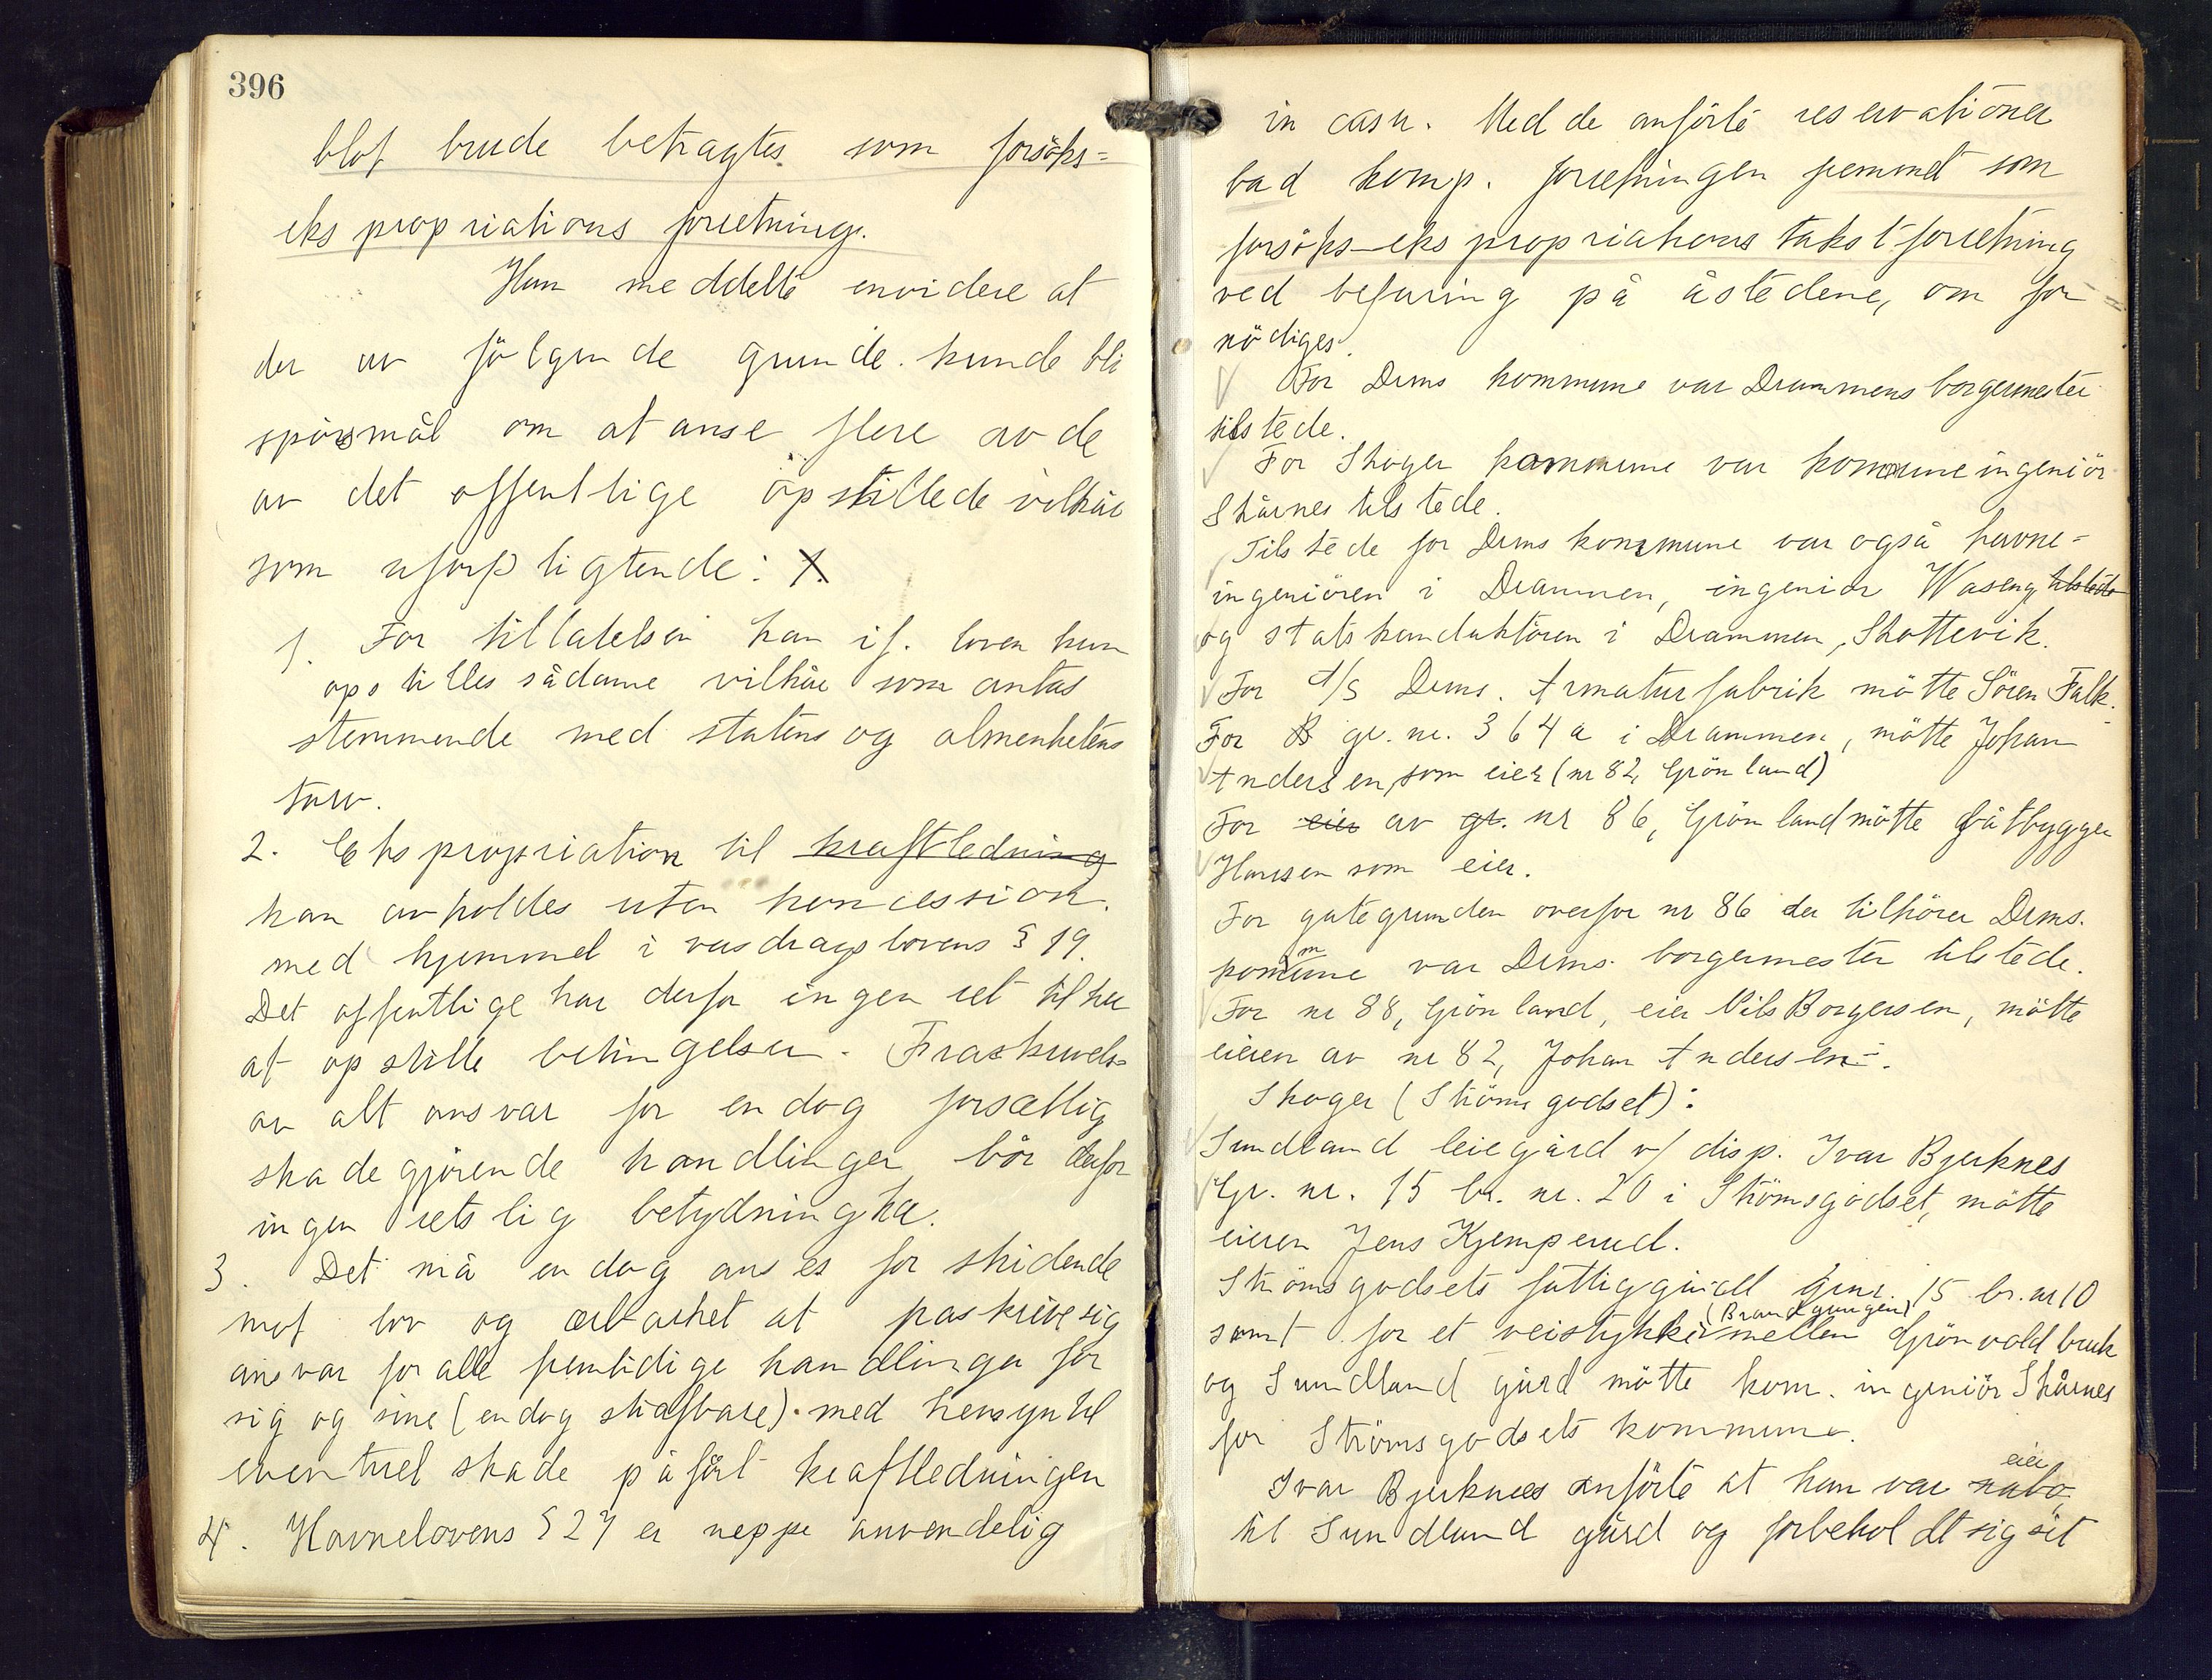 396
blot burde betragtes som forsöks-
ekspropriations forretning.
Han meddelte envidere at
der av fölgende grunde kunde bli
spörsmål om at anse flere av de
av det offentlige opstillede vilkår
som uforpligtende:
1. For tillatelsen kan if. loven kun
opstilles sådanne vilkår som antas
stemmende med statens og almenhetens
tarv.
2. Ekspropriation til kraftledning
kan avholdes uten koncession
med hjemmel i vasdragslovens § 19.
Det offentlige har derfor ingen ret til her
at opstille betingelser. Fraskrivelse
av alt ansvar for endog forsætlig
skadegjörende handlinger bör derfor
ingen retslig betydning ha.
3. Det må endog anses for stridende
mot lov og ærbarhet at paskrive sig
ansvar for alle fremtidige handlinger for
sig og sine (endog strafbare) med hensyn til
eventuel skade påfört kraftledningen
4. Havnelovens § 27 er neppe anvendelig
in casu. Med de anförte reservationer
bad komp. forretningen fremmet som
forsöks-ekspropriations takstforretning
ved befaring på åstedene, om for-
nödiges.
For Drms kommune var Drammens borgermester
tilstede.
For Skoger kommune var kommuneingeniör
Skårnes tilstede.
Tilstede for Drms kommune var også havne-
ingeniören i Drammen, ingeniör Waseng tilstede
og statskonduktören i Drammen, Skottevik.
For A/S Drms. Armaturfabrik mötte Sören Falk.
For B gr. nr. 364 a i Drammen, mötte Johan
Andersen, som eier (nr 82, Grönland)
For eier av gr. nr 86, Grönland mötte båtbygger
Hansen som eier.
For gategrunden overfor nr 86 der tilhörer Drms.
kommune var Drms. borgermester tilstede.
For nr 88, Grönland, eier Nils Borgersen, mötte
eieren av nr 82, Johan Andersen.
Skoger (Strömsgodset):
Sundland leiegård v/ disp. Ivar Bjerknes
Gr. nr. 15 br. nr. 20 i Strömsgodset, mötte
eieren Jens Kjemperud.
Strömsgodsets fattiggård gnr. 15 br. nr 10
samt for et veistykke (Brandgangen) mellem Grönvold bruk
og Sundland gård mötte kom. ingeniör Skårnes
for Strömsgodsets kommune.
Ivar Bjerknes anförte at han var nabo, eier
til Sundland gård og forbeholdt sig sit